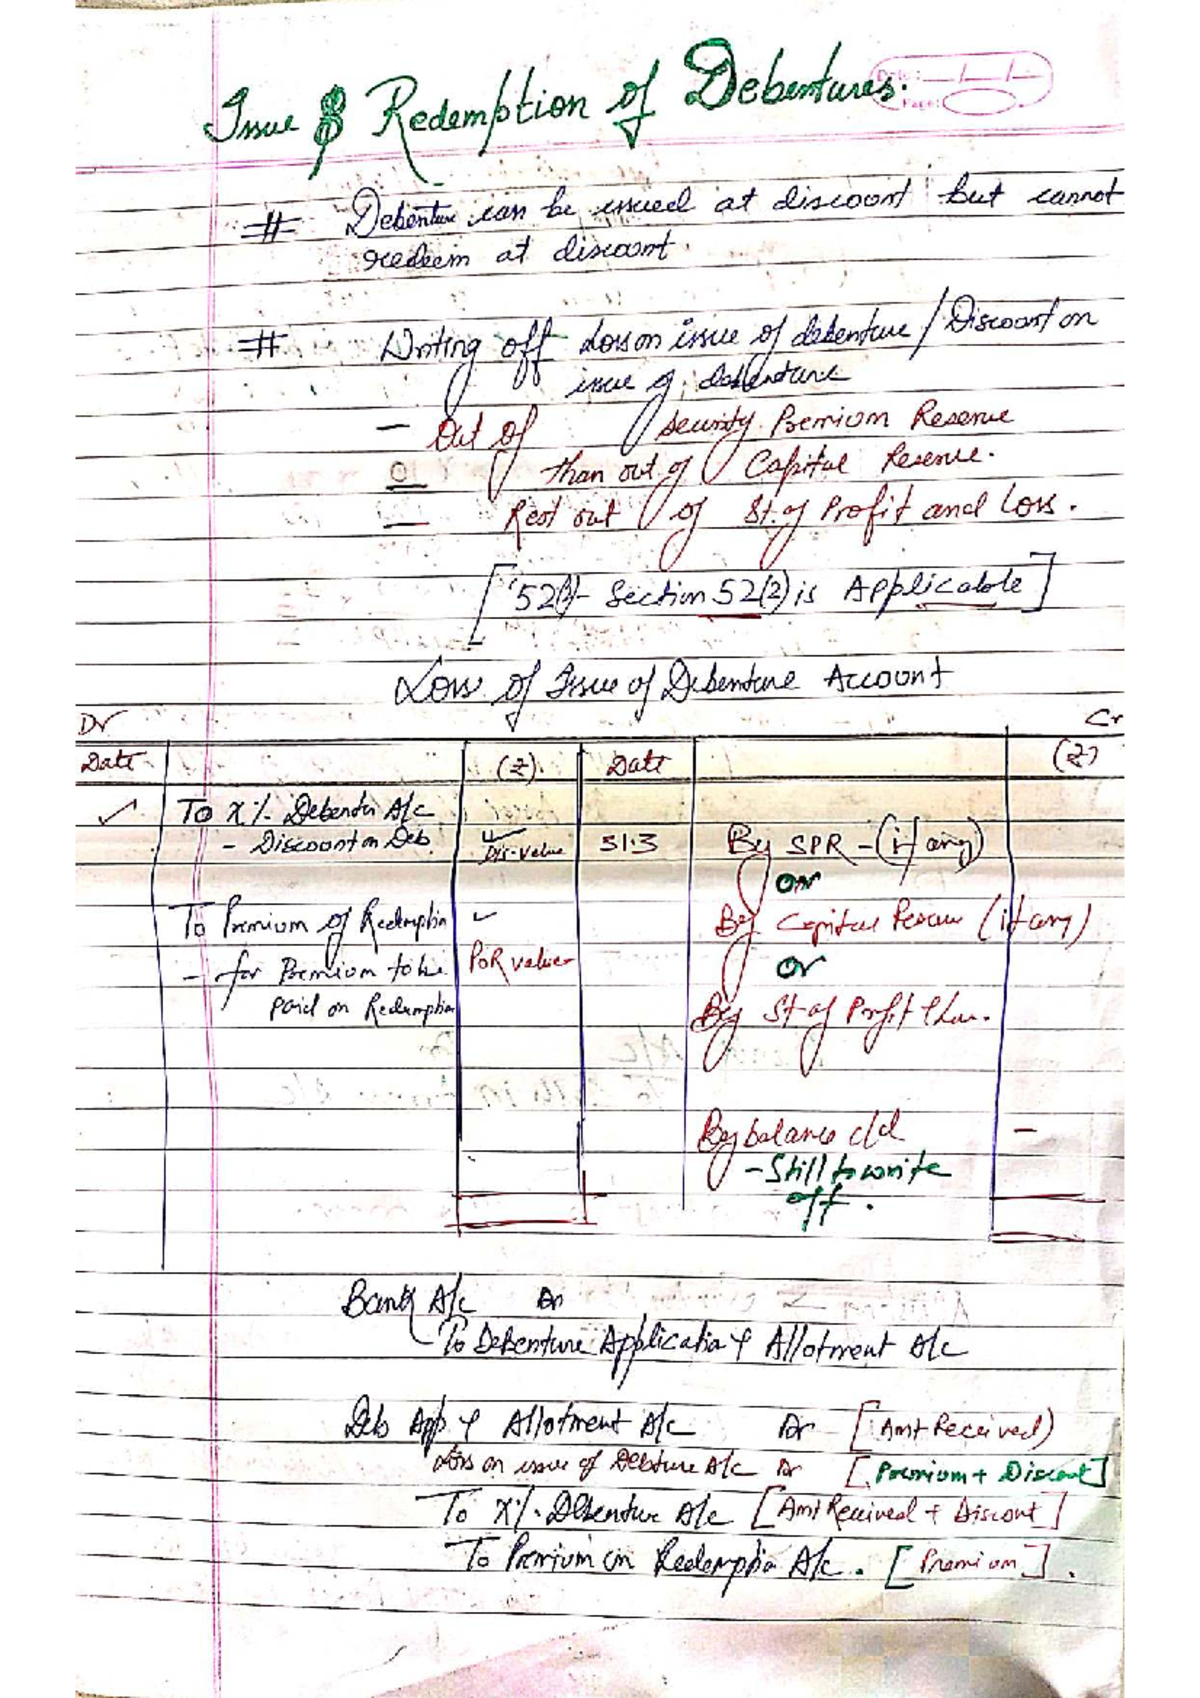 Date: __/__/__
Page:
Issue & Redemption of Debentures.
# Debenture can be issued at discount but cannot
redeem at discount.
# Writing off Loss on issue of debenture / Discount on
issue of debenture
- Out of Security Premium Reserve
Than out of Capital Reserve.
- Rest out of St. of Profit and Loss.
[ Section 52(2) is Applicable ]
Loss of Issue of Debenture Account
Dr Cr
Date (₹) Date (₹)
✓ To X% Debentu A/c
- Discount on Deb. Dis. value 31.3 By SPR - (if any)
or
To Premium of Redemption ✓ By Capital Reserve (if any)
- for Premium to be PoR value or
paid on Redemption By St of Profit & Loss.
By balance c/d -
- Still to write
off.
Bank A/c Dr
To Debenture Application & Allotment A/c
Deb App & Allotment A/c Dr [Amt Received)
Loss on issue of Debture A/c Dr [Premium + Discount]
To X% Debenture A/c [Amt Received + Discount]
To Premium on Redemption A/c. [Premium].